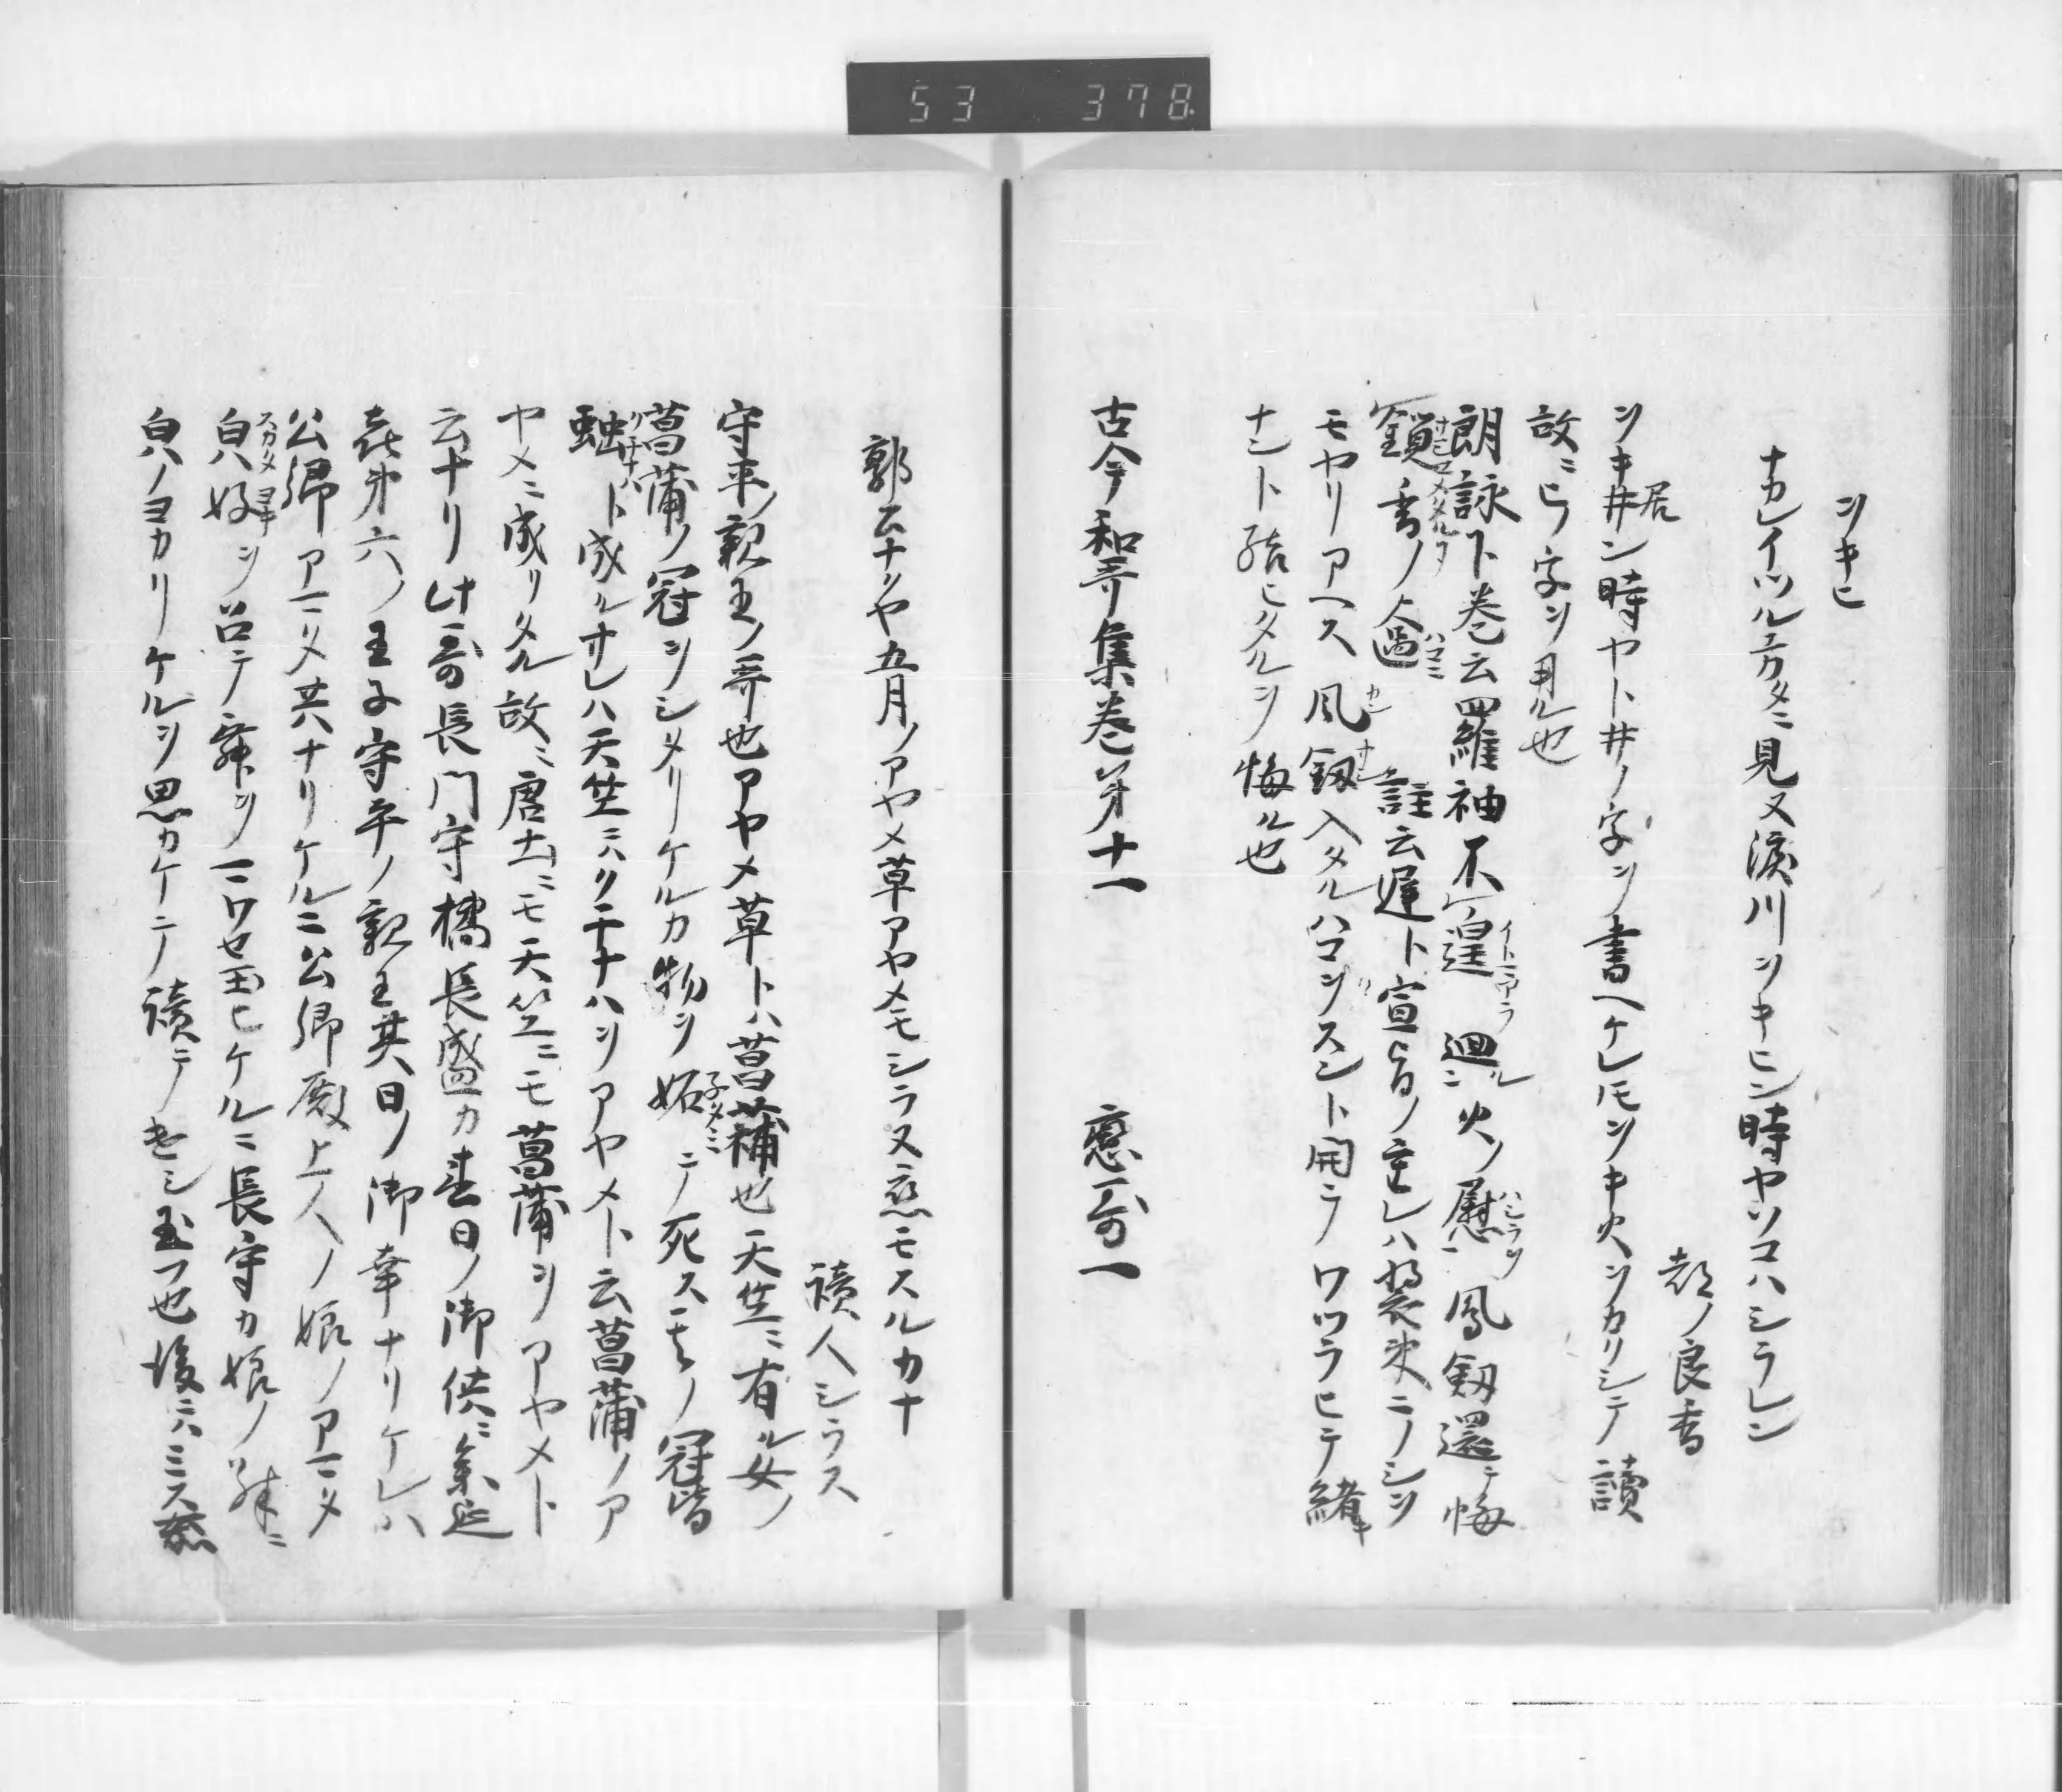 53 378
ヲキヒ
ナカレイツル方タニ見又涙川ヲキヒン時ヤソコハシラレン
都ノ良香
ヲキ井ン時ヤト井ノ字ヲ書ヘケレ𪜈ヲキ火ヲカリシテ讀
居
故ニヒノ字ヲ用ル也
朗詠下巻云羅袖不レ遑廻ニ火ノ慰ニ鳳釵還テ悔
イトマアラ ル
鎖香ノ匳 註云遅ト宣旨ノ重レハ装束ニノシヲ
ハコニ
モヤリアヘス風釵入タルハコヲスシト開テワツラヒテ緒
カンサシ
ナント結ヒタルヲ悔ル也
古今和哥集巻第十一 戀哥一
郭公ナクヤ五月ノアヤメ草アヤメモシラヌ恋モスルカナ
讀人シラス
守平ノ親王ノ哥也アヤメ草トハ菖蒲也天竺ニ有ル女ノ
菖蒲ノ冠ヲシメリケルカ物ヲ妬テ死ス其ノ冠皆
子タミ
蚰ト成ルサレハ天竺ニハクチナハヲアヤメト云菖蒲ノア
クチナハ
ヤメニ成リタル故ニ唐土ニモ天竺ニモ菖蒲ヲアヤメト
云ナリ此哥長門守橘長盛カ春日ノ御供ニ参延
喜第六ノ王子守平ノ親王其日ノ御幸ナリケレハ
公卿アマタ共ナリケルニ公卿殿上人ノ娘ノアマメ
㒵好ヲ召テ舞ヲマワセ玉ヒケルニ長守カ娘ノ殊ニ
スカタ ヨキ
㒵ノヨカリケルヲ思カケテ讀テキセシ玉フ也後ニハミス恋